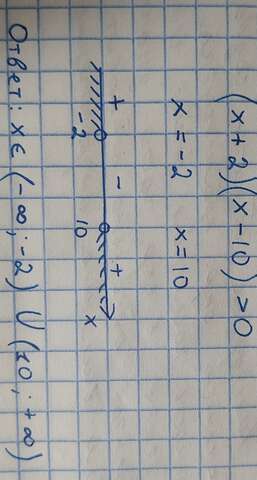 (x+2)(x-10)>0
x=-2 x=10
+ - +
-2 10 x
Ответ: x∈(-∞;-2)∪(10;+∞)